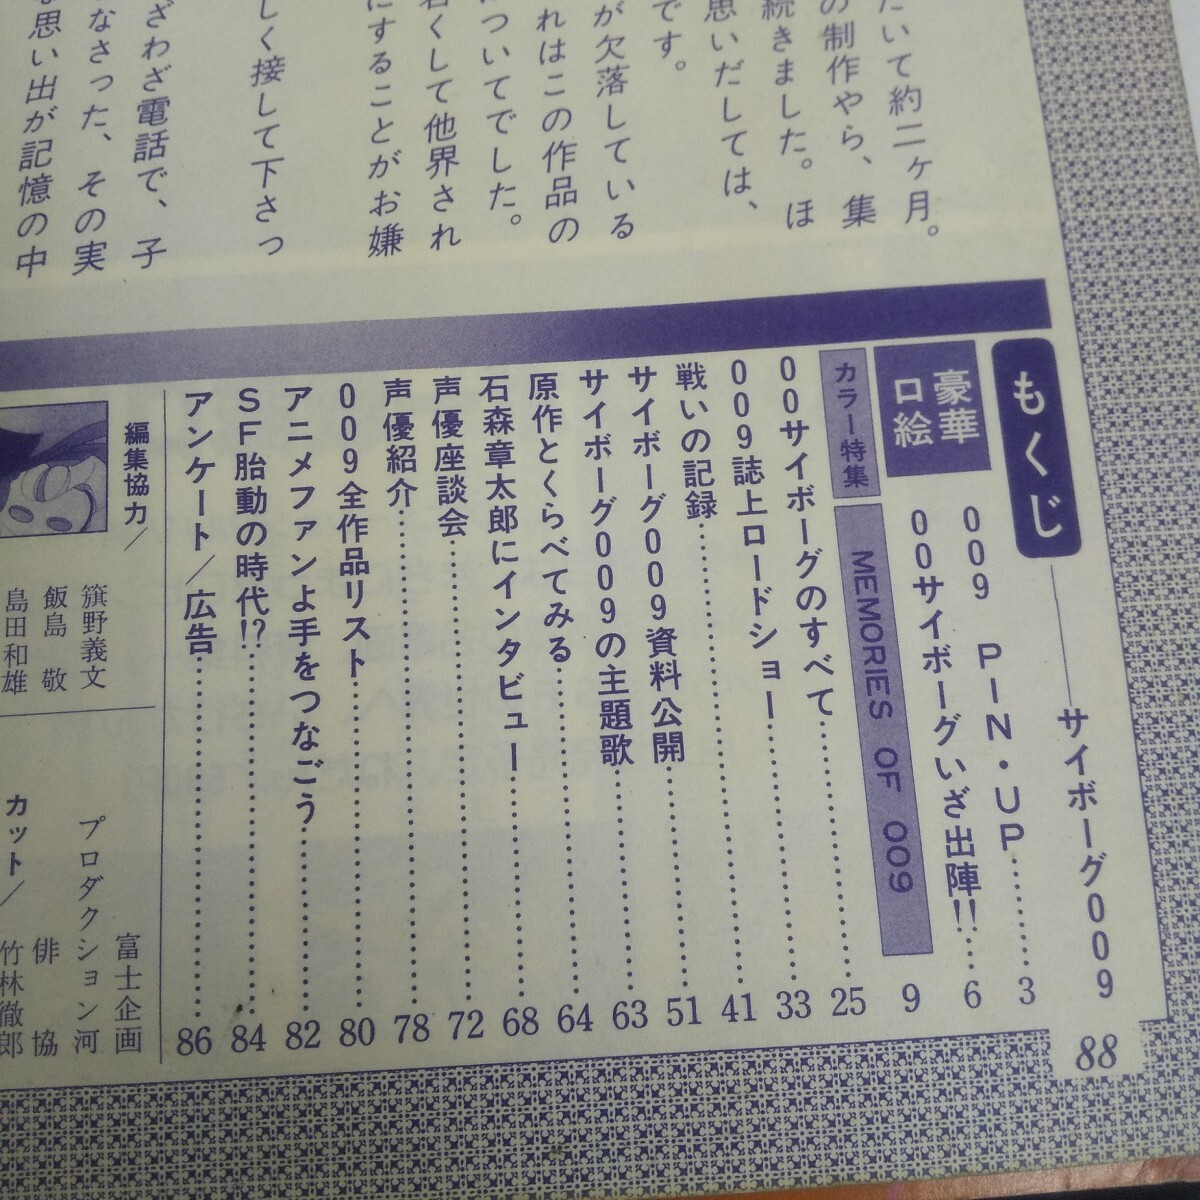 だいて約二ヶ月。
の制作やら、集
続きました。ほ
思いだしては、
です。
が欠落している
れはこの作品の
についてでした。
若くして他界され
にすることがお嫌
しく接して下さっ
ざわざ電話で、子
なさった、その実
な思い出が記憶の中
もくじ
サイボーグ009
豪華
口絵
009 PIN・UP……3
00サイボーグいざ出陣!!……6
カラー特集
MEMORIES OF 009 9
00サイボーグのすべて……25
009誌上ロードショー……33
戦いの記録……41
サイボーグ009資料公開……51
サイボーグ009の主題歌……63
原作とくらべてみる……64
石森章太郎にインタビュー……68
声優座談会……72
声優紹介……78
009全作品リスト……80
アニメファンよ手をつなごう……82
SF胎動の時代!?……84
アンケート／広告……86
編集協力／
籏野義文
飯島 敬
島田和雄
富士企画
プロダクション河
俳 協
カット／竹林徹郎
88